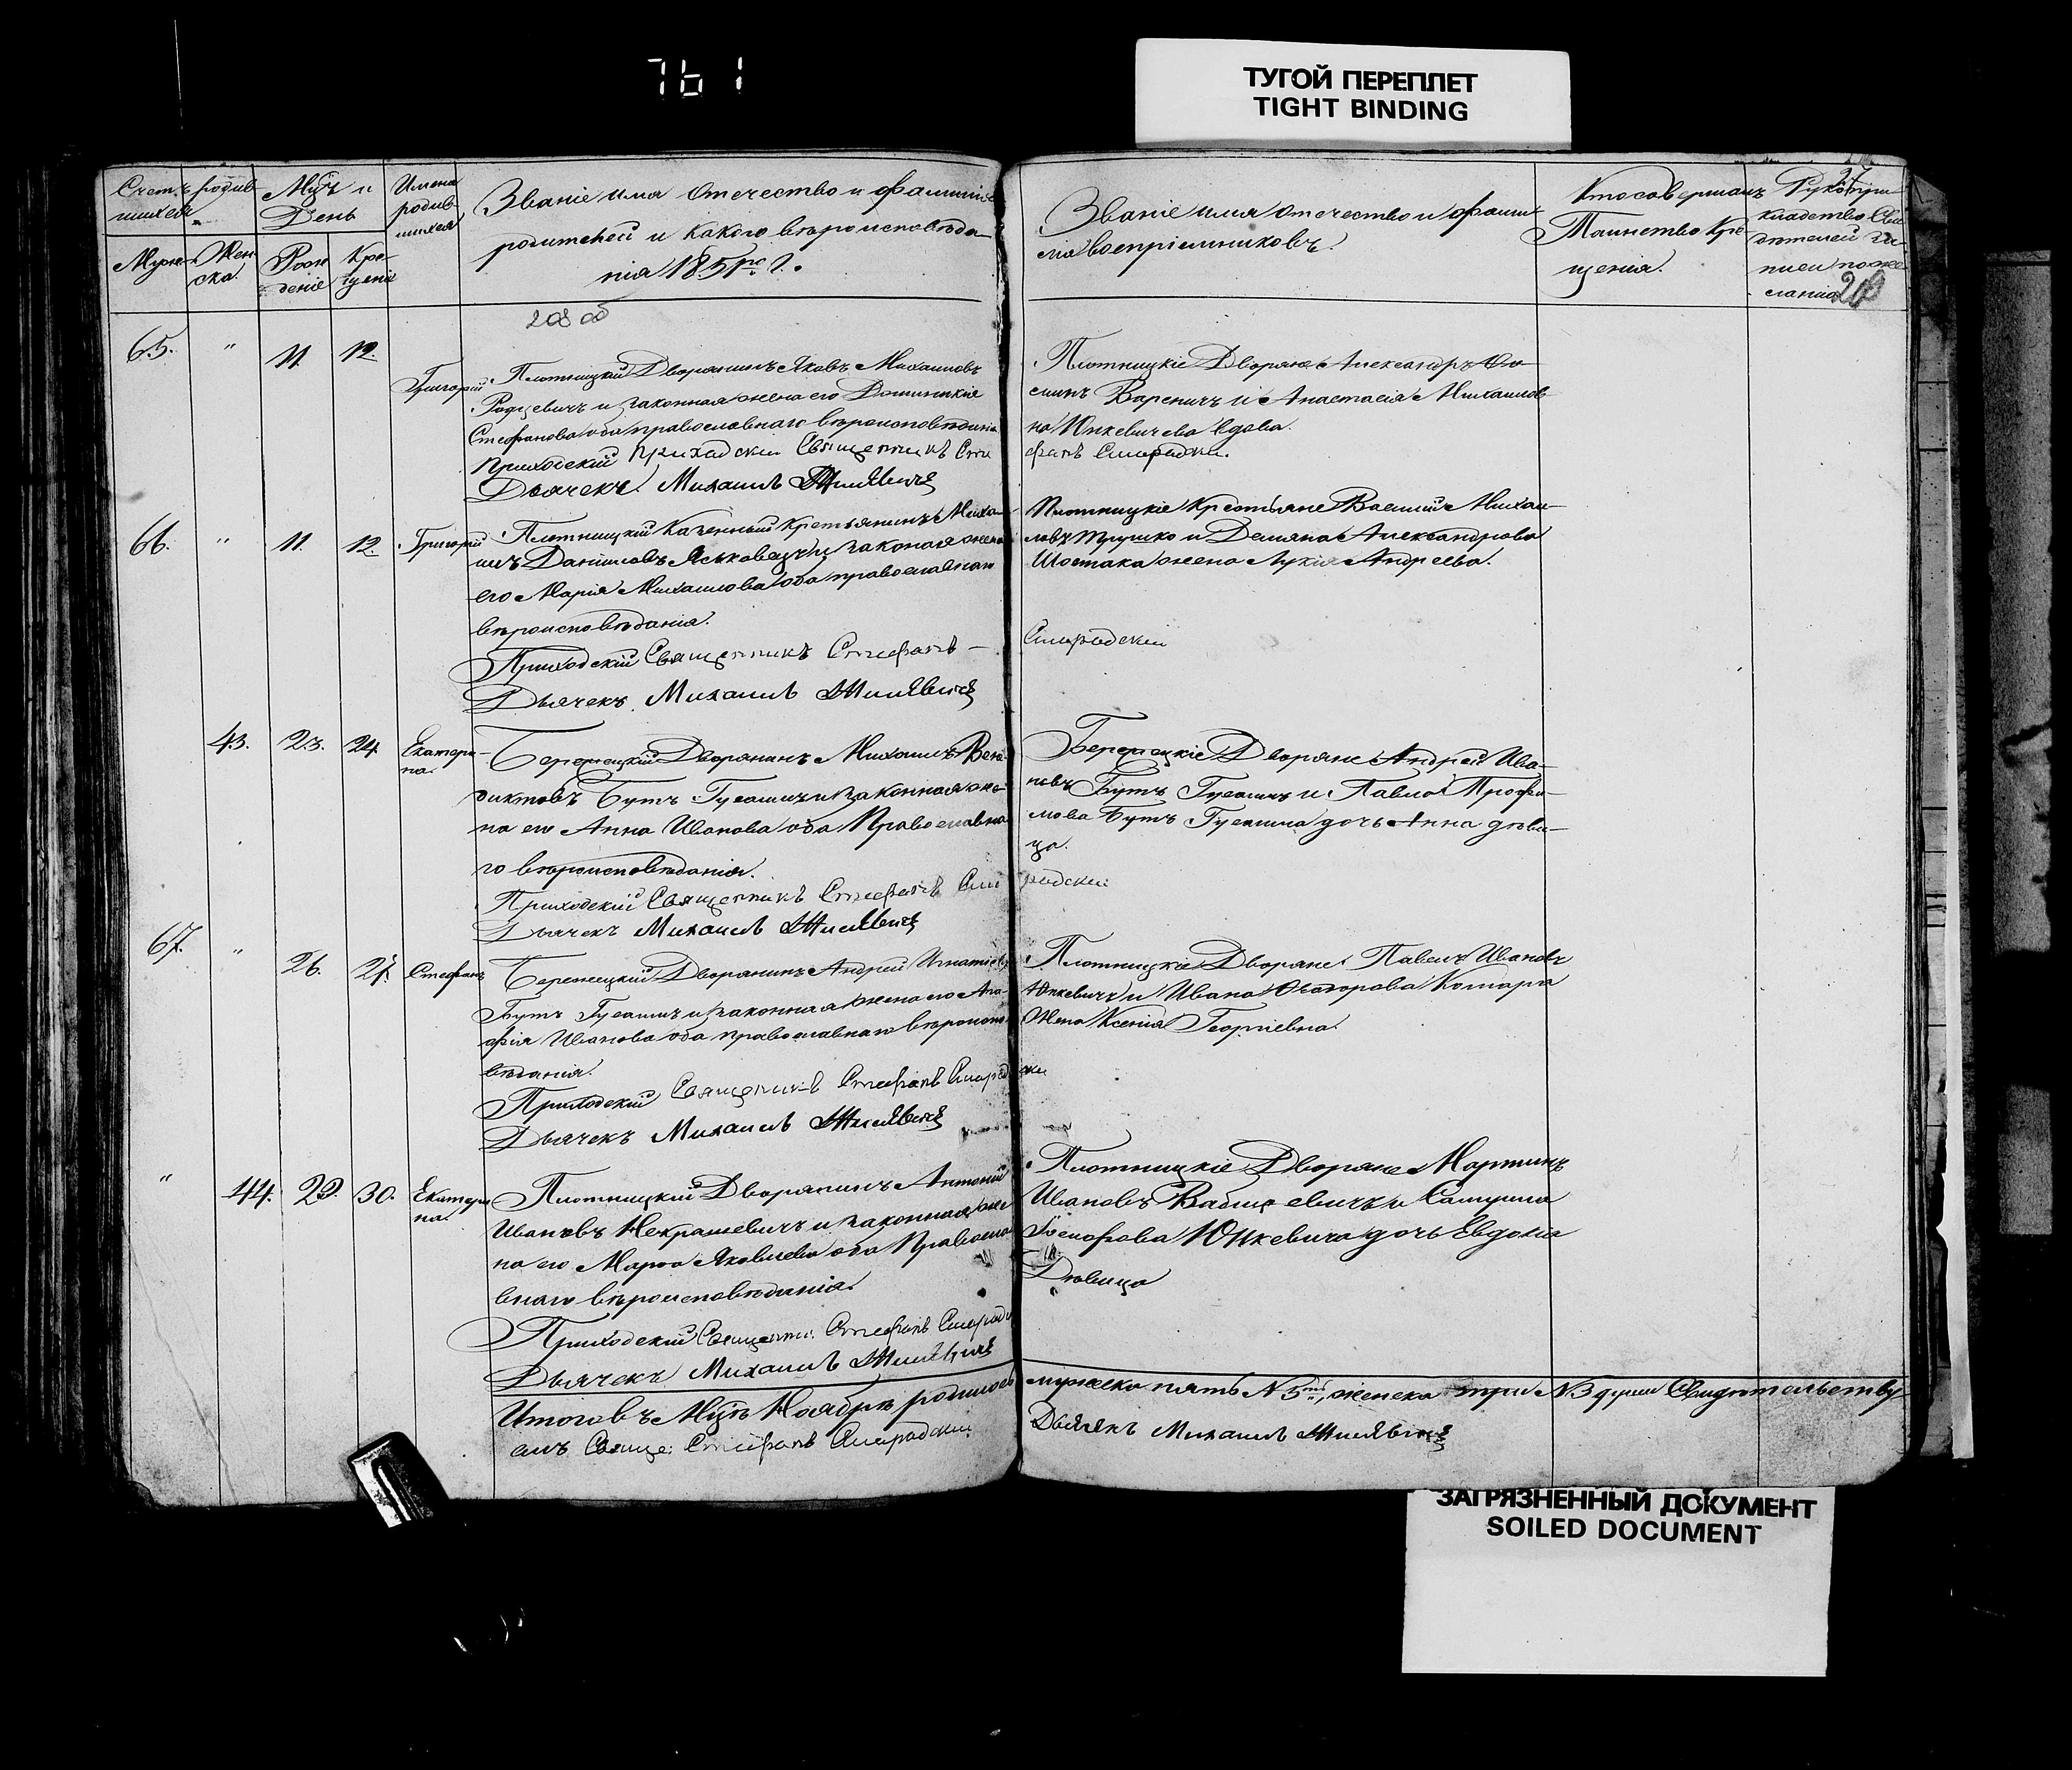 761
ТУГОЙ ПЕРЕПЛЕТ
TIGHT BINDING
Счетъ родив
шихся
Муж. Жен
ска.
Мѣсяцъ и
День
Рож
деніе
Кре-
щеніе
Имена
родив-
шихся
Званіе имя отечество и фамилія
родителей и какого вѣроисповѣда
нія 1851го г.
Званіе имя отечество и фами
лія воспріемниковъ.
Кто совершалъ
Таинство Кре
щенія.
27
Рукопри
кладство Сви
дѣтелей за-
писи по же
ланію
20
208 об
65. " 11. 12. Григорій
Плотницкій Дворянинъ Яковъ Михаиловъ
Родцевичъ и законная жена его Доминикія
Стефанова оба православнаго вѣроисповѣданія
Приходскій Приходскій Священникъ Сте
Дьячекъ Михаилъ
Плотницкіе Дворяне Александръ
Вареничъ и Анастасія Михаилов
на Юнкевичева вдова.
фанъ Смородскій.
66. " 11. 12. Григорій
Плотницкій Казенный Крестьянинъ Миха-
илъ Даниловъ и законая жена
его Марія Михаилова оба православнаго
вѣроисповѣданія.
Приходскій Священникъ Стефанъ –
Дьячекъ Михаилъ
Плотницкіе Крестьяне Василій Михаи-
ловъ Трушко и Демяна Александрова
Шостака жена Лукія Андреева.
Смородскій
43. 23. 24. Екатери-
на.
Бережецкій Дворянинъ Михаилъ Вене-
диктовъ Бутъ Гусаимъ и законная же-
на его Анна Иванова оба Православна
го вѣроисповѣданія.
Приходскій Священникъ Стефанъ Смо
Дьячекъ Михаилъ
Бережецкіе Дворяне Андрей Ива-
новъ Бутъ Гусаимъ и Павла Трофи-
мова Бутъ Гусаима дочь Анна дѣви-
ца.
родскій
67. " 26. 27. Стефанъ
Бережецкій Дворянинъ Андрей Игнатіев
Бутъ Гусаимъ и законная жена его Ага-
фія Иванова оба православнаго вѣроиспо
вѣданія.
Приходскій Священникъ Стефанъ Смород
Дьячекъ Михаилъ
Плотницкіе Дворяне Павелъ Ивановъ
Юнкевичъ и Ивана Ѳеодорова Комара
Жена Ксенія Георгіевна.
скій
" 44. 29. 30. Екатери
на.
Плотницкій Дворянинъ Антоній
Ивановъ Некрашевичъ и законная же
на его Марѳа Яковлева оба Правосла
внаго вѣроисповѣданія.
Приходскій Священни: Стефанъ Смородс
Дьячекъ Михаилъ
Плотницкіе Дворяне Мартинъ
Ивановъ Вабищевичъ и Самуила
Юнкевича дочь Евдокія
Дѣвица
Итого въ Мѣцѣ Ноябрѣ родилось
мужеска пять №5ть, женска три №3 души Свидѣтельству
емъ Свяще: Стефанъ Смородскій
Дьячекъ Михаилъ
ЗАГРЯЗНЕННЫЙ ДОКУМЕНТ
SOILED DOCUMENT